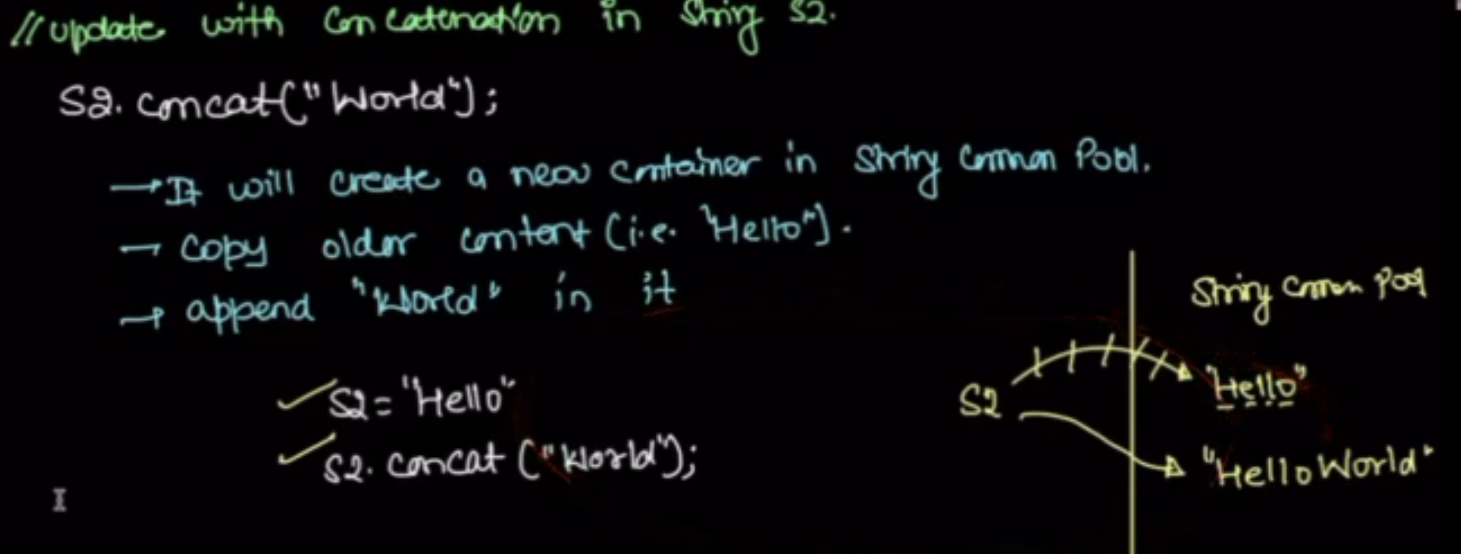 //update with Concatenation in String S2.
S2.concat("World");
→ It will create a new container in String Common Pool.
→ Copy older content (i.e. "Hello").
→ append "World" in it
S2="Hello"
S2.concat ("World");
String Common Pool
S2
"Hello"
"Hello World"